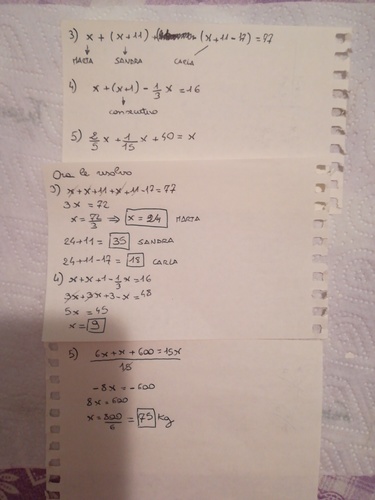 3) x + (x+11) + (x+11-17) = 77
MARTA SANDRA CARLA
4) x + (x+1) - 1/3 x = 16
consecutivo
5) 2/5 x + 1/15 x + 40 = x
Ora le risolvo
3) x + x + 11 + x + 11 - 17 = 77
3x = 72
x = 72/3 ⇒ x = 24 MARTA
24+11 = 35 SANDRA
24+11-17 = 18 CARLA
4) x+x+1-1/3 x = 16
3x+3x+3-x = 48
5x = 45
x = 9
5) 6x + x + 600 = 15x
15
-8x = -600
8x = 600
x = = 75 Kg